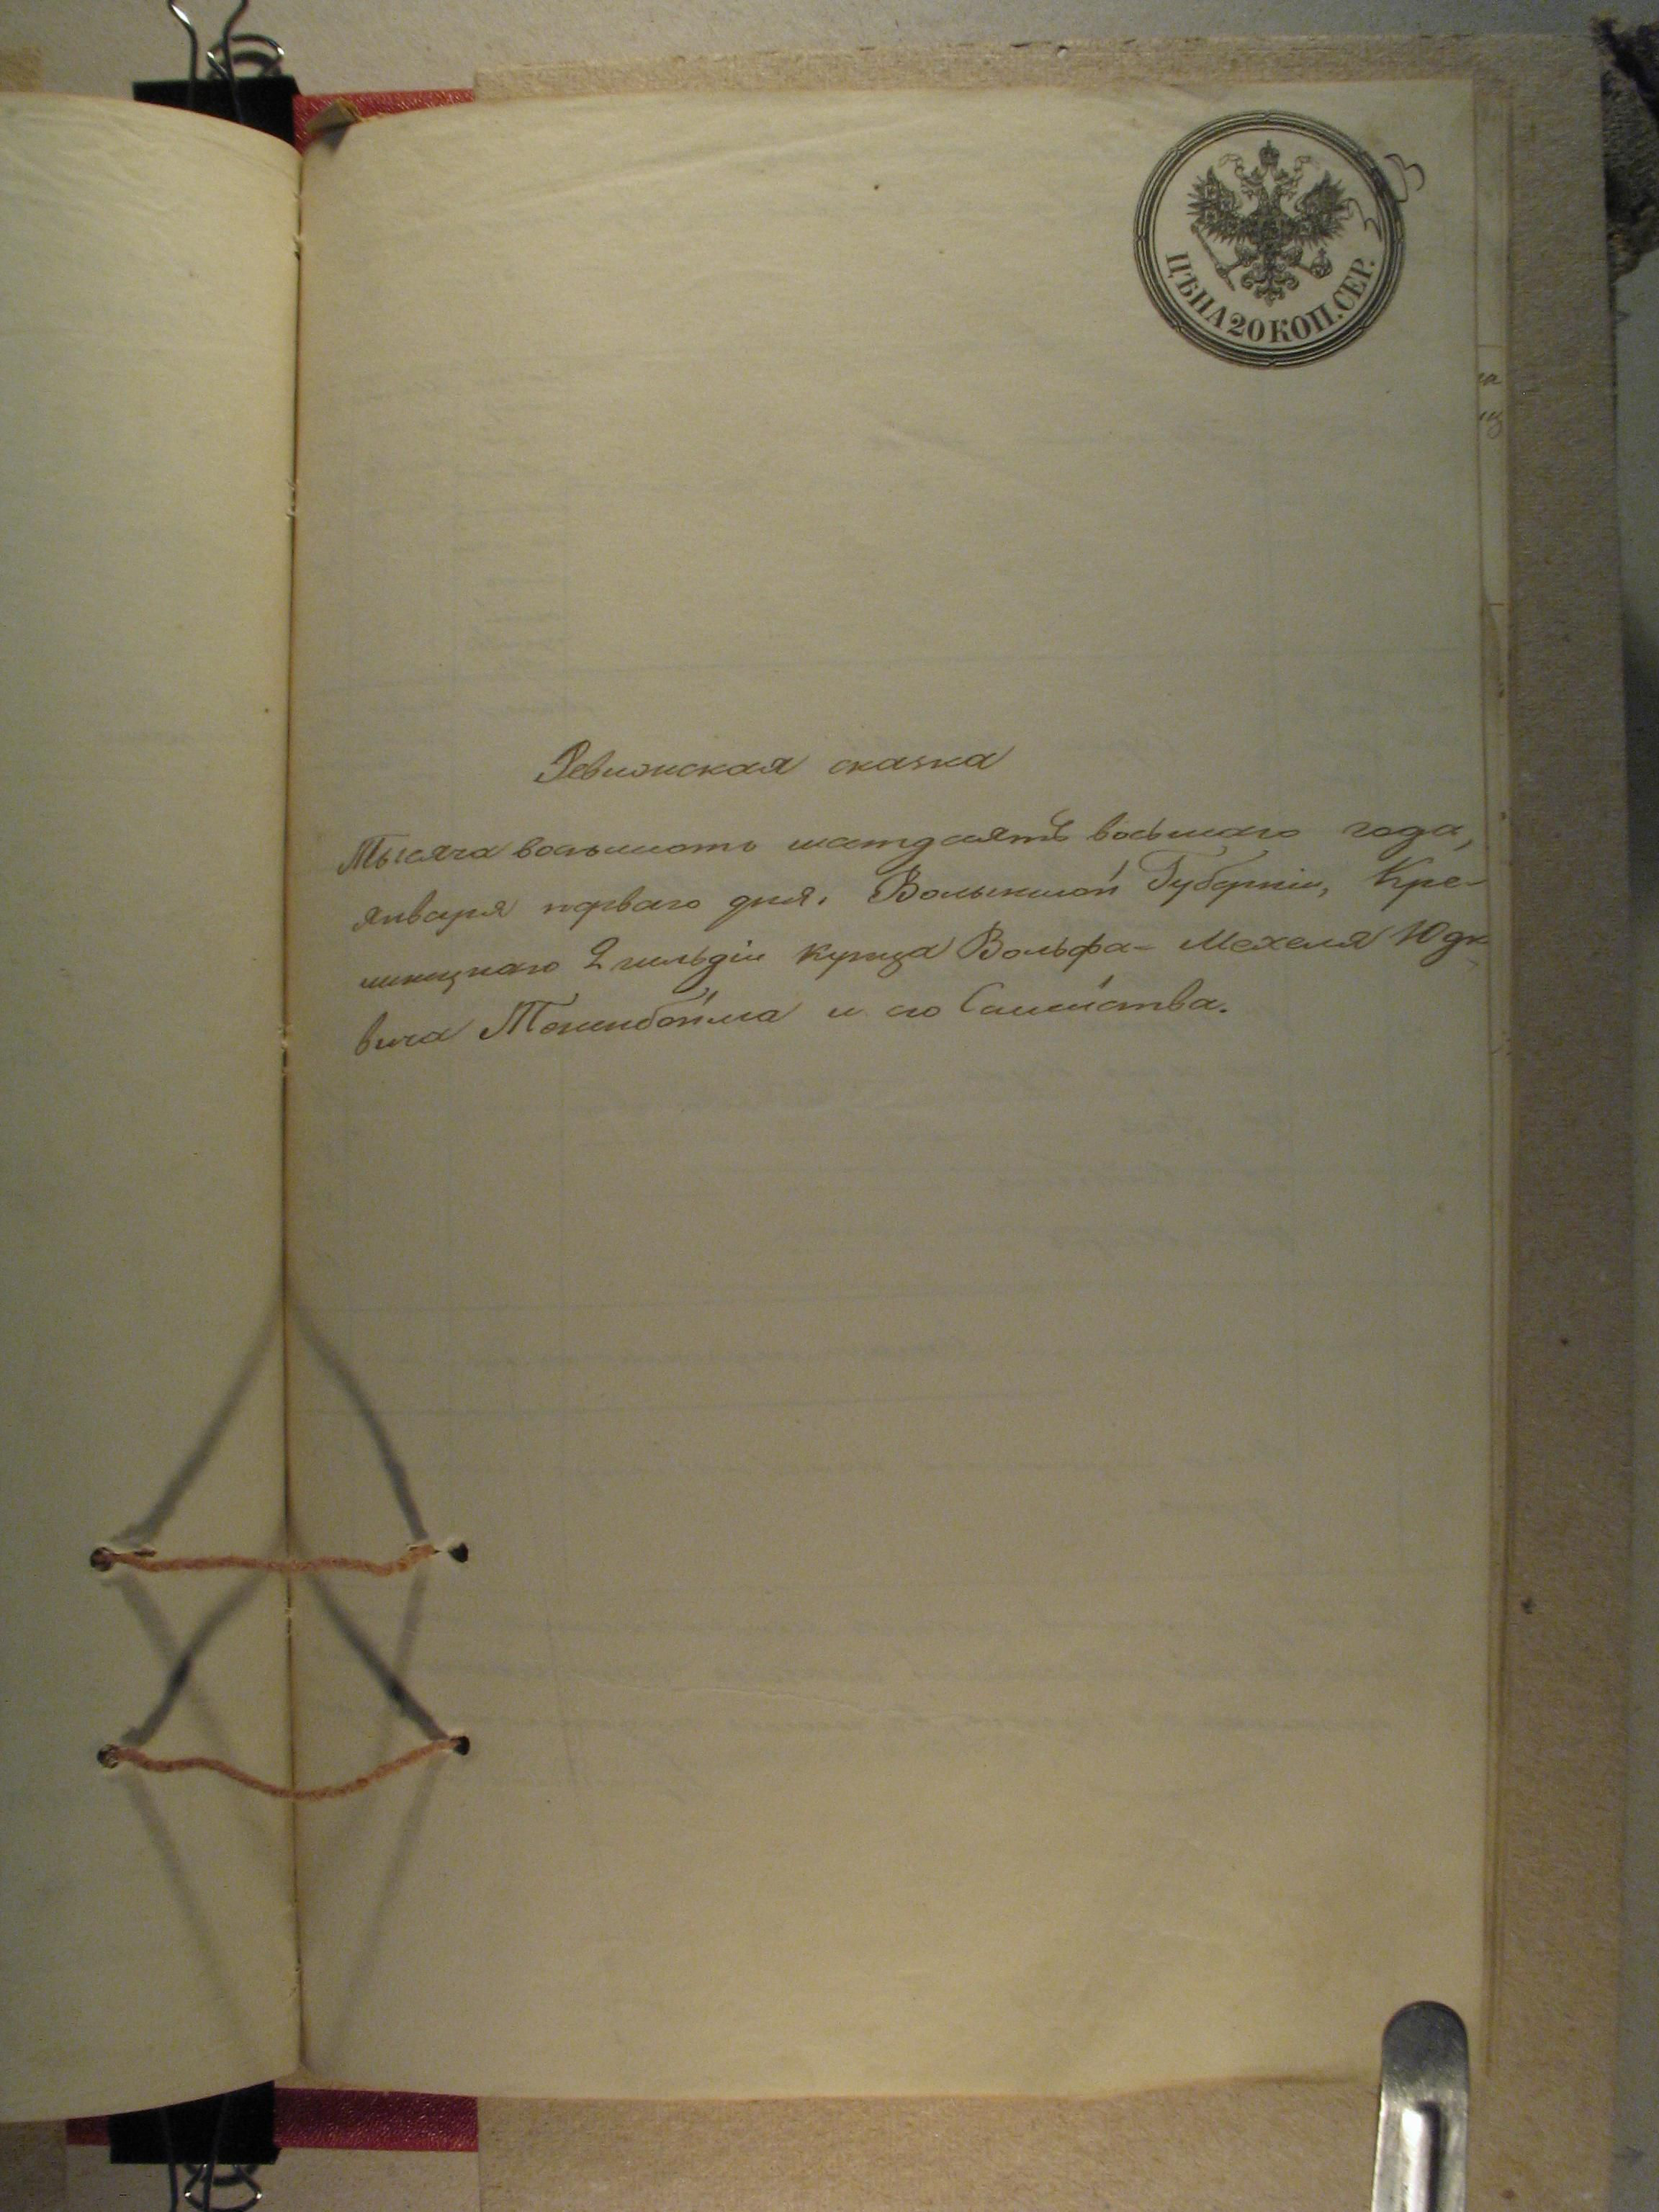 ЦѢНА 20 КОП. СЕР.
Ревизская сказка
Тысяча восемьсотъ шестдесятъ восьмаго года,
Января перваго дня. Волынской Губерніи, Кре-
менецкаго 2 гильдіи купца Вольфа-Мехеля Юдко-
вича Тененбойма и его Семейства.